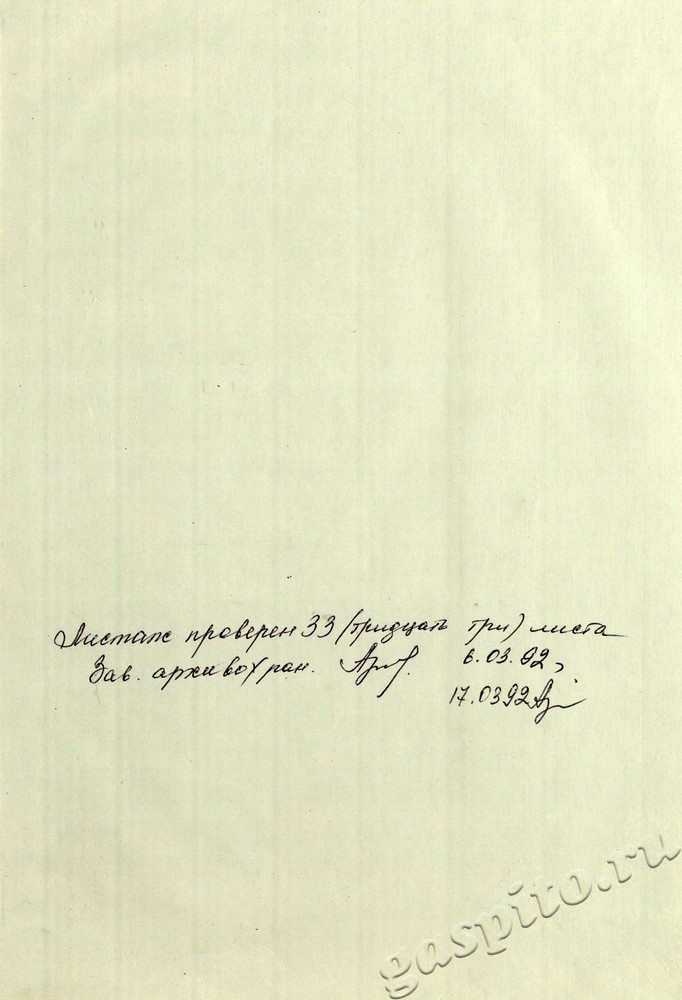 Листаж проверен 33 (тридцать три) листа
Зав. архивохран. 6.03.92,
17.0392
gaspito.ru